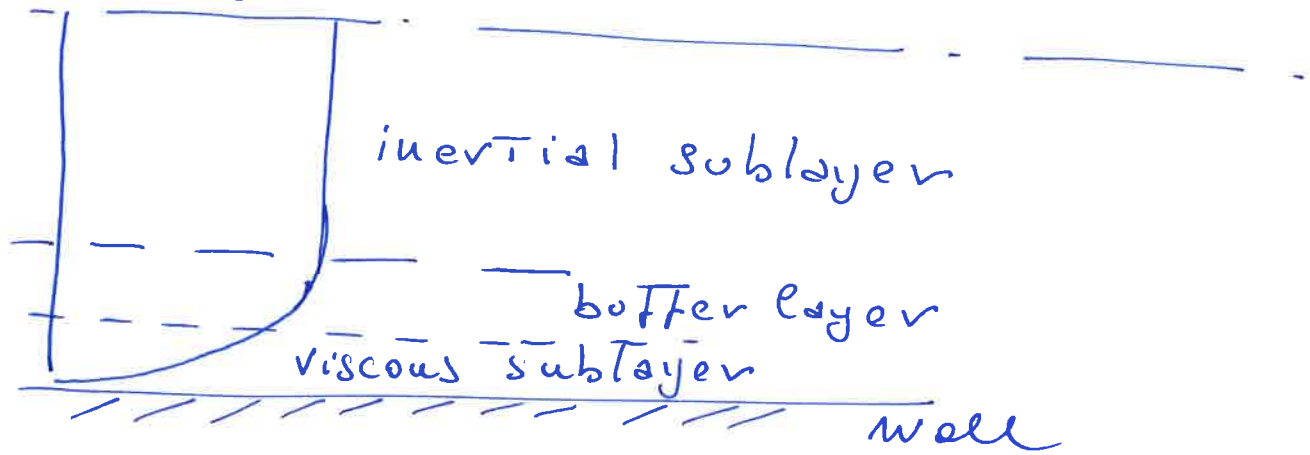 inertial sublayer
buffer layer
viscous sublayer
wall